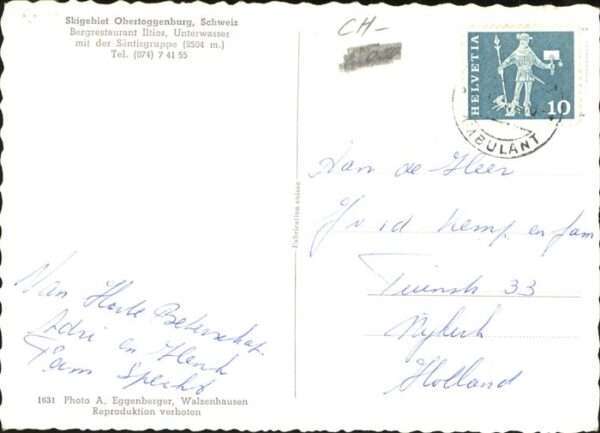 Skigebiet Obertoggenburg, Schweiz
Bergrestaurant Iltios, Unterwasser
mit der Säntisgruppe (2504 m.)
Tel. (074) 7 41 55
CH-
HELVETIA
10
AMBULANT
Fabrication suisse
Aan de Heer
J v d Kemp en fam
33
Nijkerk
Holland
Van Harte Beterschap
Adri en Henk
Fam Specht
1631 Photo A. Eggenberger, Walzenhausen
Reproduktion verboten